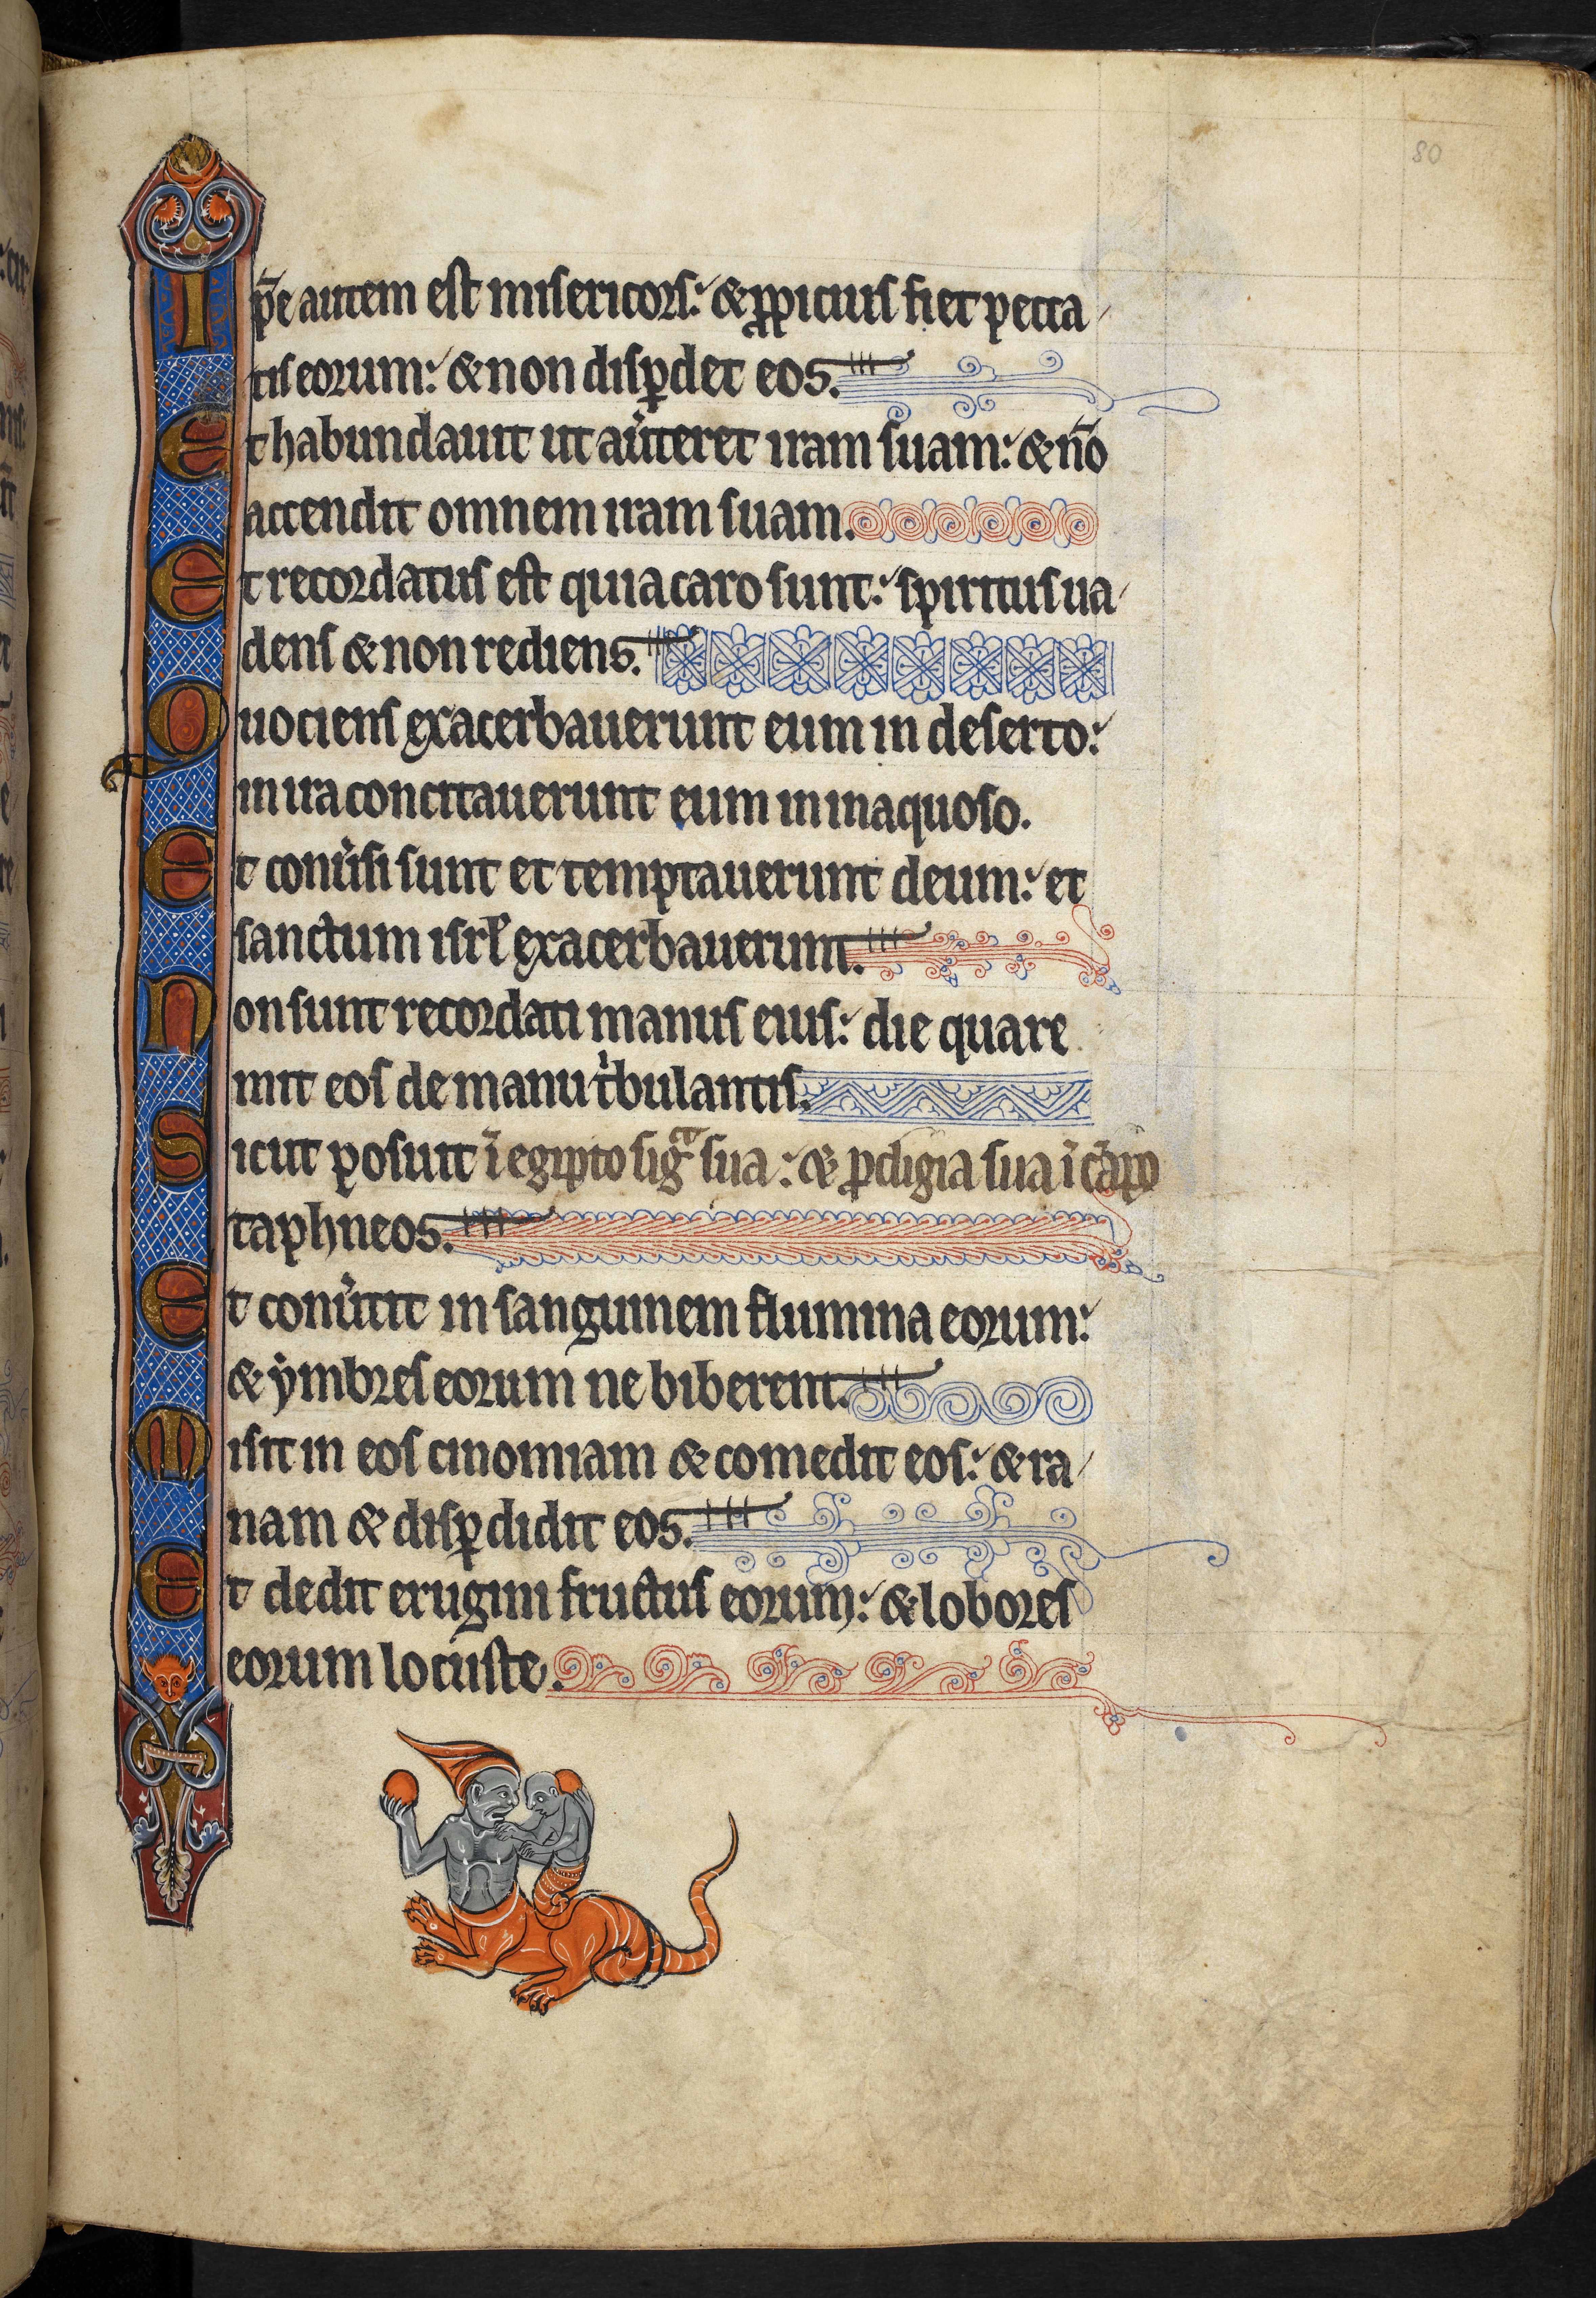 80
Ip̄e autem est misericors: & ꝓpicius fiet pecca
tis eorum: & non disꝑdet eos.
Et habundauit ut au͛teret iram suam: & nō
accendit omnem iram suam.
Et recordatus est quia caro sunt: spiritus ua
dens & non rediens.
Quociens exacerbauerunt eum in deserto:
in ira concitauerunt eum in inaquoso.
Et conu͛si sunt et temptauerunt deum: et
sanctum isrl̄ exacerbauerunt.
Non sunt recordati manus eius: die qua re
mit eos de manu tⁱbulantis.
Sicut posuit ī egipto sigᵃ sua: & ꝓdigia sua ī cāpo
taphneos.
Et conu͛tit in sanguinem flumina eorum:
& ẏmbres eorum ne biberent.
Misit in eos cinomiam & comedit eos: & ra
nam & disꝑdidit eos.
Et dedit erugini fructus eorum: & lobores
eorum locuste.